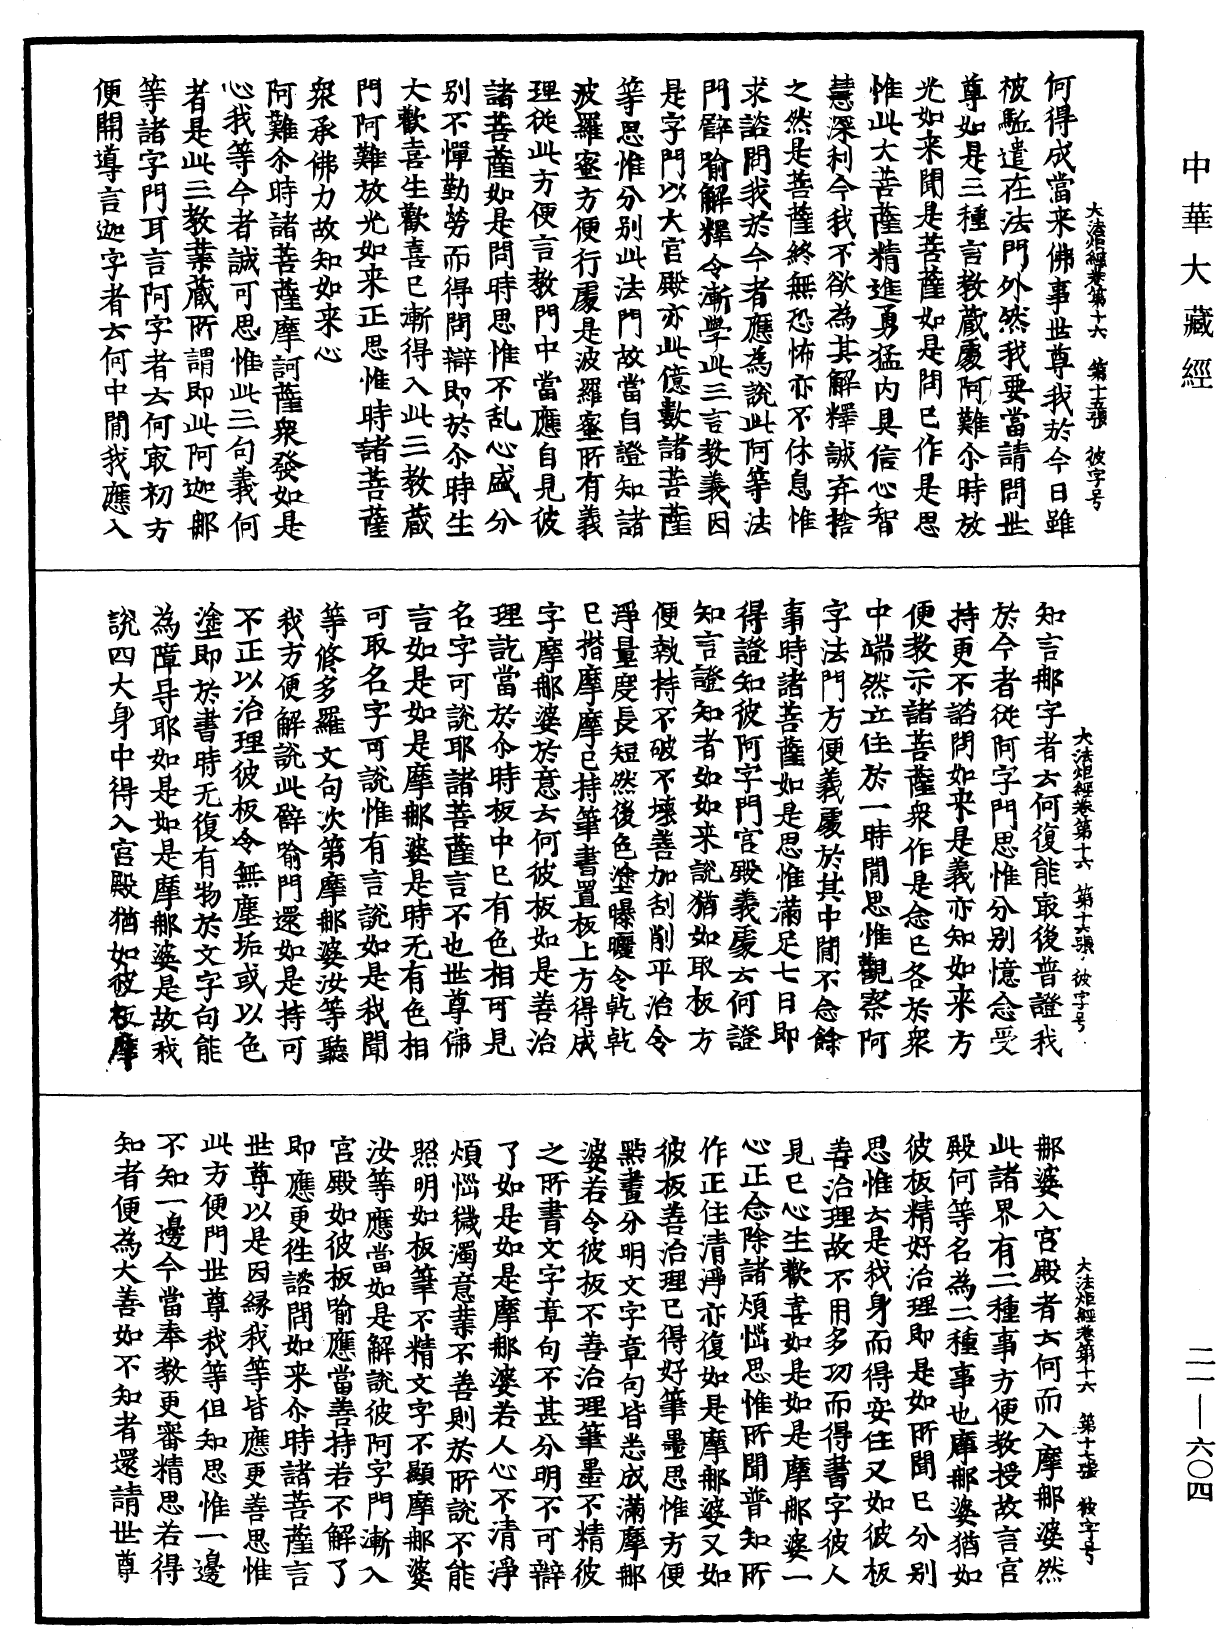 中華大藏經
大法炬經卷第十六 第十五張 彼字号
何得成當来佛事世尊我於今日雖
被駈遣在法門外然我要當請問世
尊如是三種言教藏處阿難尒時放
光如来聞是菩薩如是問已作是思
惟此大菩薩精進勇猛内具信心智
慧深利今我不欲為其解釋誠弃捨
之然是菩薩終無恐怖亦不休息惟
求諮問我於今者應為說此阿等法
門譬喻解釋令漸學此三言教義因
是字門以大宫殿亦此億數諸菩薩
等思惟分别此法門故當自證知諸
波羅蜜方便行處是波羅蜜所有義
理從此方便言教門中當應自見彼
諸菩薩如是問時思惟不乱心盛分
别不憚勤勞而得問辯即於尒時生
大歡喜生歡喜已漸得入此三教藏
門阿難放光如来正思惟時諸菩薩
衆承佛力故知如来心
阿難尒時諸菩薩摩訶薩衆發如是
心我等今者誠可思惟此三句義何
者是此三教業藏所謂即此阿迦那
等諸字門耳言阿字者云何取初方
便開導言迦字者云何中間我應入
大法炬經卷第十六 第十六張 彼字号
知言那字者云何復能取後普證我
於今者從阿字門思惟分别憶念受
持更不諮問如来是義亦知如来方
便教示諸菩薩衆作是念已各於衆
中端然立住於一時間思惟觀察阿
字法門方便義處於其中間不念餘
事時諸菩薩如是思惟滿足七日即
得證知彼阿字門宫殿義處云何證
知言證知者如如来說猶如取板方
便執持不破不壞善加刮削平治令
淨量度長短然後色塗曝曬令乾乾
已揩摩摩已持筆書置板上方得成
字摩那婆於意云何彼板如是善治
理訖當於尒時板中已有色相可見
名字可說耶諸菩薩言不也世尊佛
言如是如是摩那婆是時无有色相
可取名字可說惟有言說如是我聞
等修多羅文句次第摩那婆汝等聽
我方便解說此譬喻門還如是持可
不正以治理彼板令無塵垢或以色
塗即於書時无復有物於文字句能
為障㝵耶如是如是摩那婆是故我
說四大身中得入宫殿猶如彼板摩
大法炬經卷第十六 第十七張 彼字号
那婆入宫殿者云何而入摩那婆然
此諸界有二種事方便教授故言宫
殿何等名為二種事也摩那婆猶如
彼板精好治理即是如所聞已分别
思惟云是我身而得安住又如彼板
善治理故不用多功而得書字彼人
見已心生歡喜如是如是摩那婆一
心正念除諸煩惱思惟所聞普知所
作正住清淨亦復如是摩那婆又如
彼板善治理已得好筆墨思惟方便
點畫分明文字章句皆悉成滿摩那
婆若令彼板不善治理筆墨不精彼
之所書文字章句不甚分明不可辯
了如是如是摩那婆若人心不清淨
煩惱穢濁意業不善則於所說不能
照明如板筆不精文字不顯摩那婆
汝等應當如是解說彼阿字門漸入
宫殿如彼板喻應當善持若不解了
即應更往諮問如来尒時諸菩薩言
世尊以是因緣我等皆應更善思惟
此方便門世尊我等但知思惟一邊
不知一邊今當奉教更審精思若得
知者便為大善如不知者還請世尊
二一—六〇四